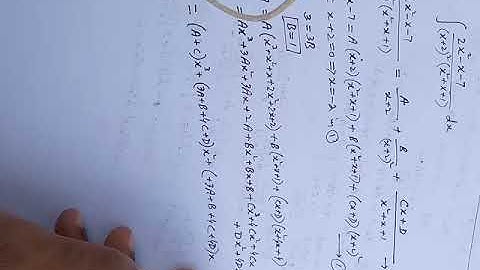 ∫ 2x²-x-7 / (x+2)²(x²+x+1) dx
x²-x-7 / (x²+x+1) = A / x+2 + B / (x+2)² + Cx+D / x²+x+1 →
x-7 = A(x+2)(x²+x+1) + B(x²+x+1) + (Cx+D)(x+2)² → ①
x+2=0 ⇒ x=-2 in ①
3=3B
B=1
A(x³+x²+x+2x²+2x+2) + B(x²+x+1) + (Cx+D)(x²+4x+4)
= Ax³+3Ax²+3Ax+2A+Bx²+Bx+B+Cx³+4Cx²+4Cx
+Dx²+4D
= (A+C)x³+(3A+B+4C+D)x²+(+3A+B+4C+4D)x